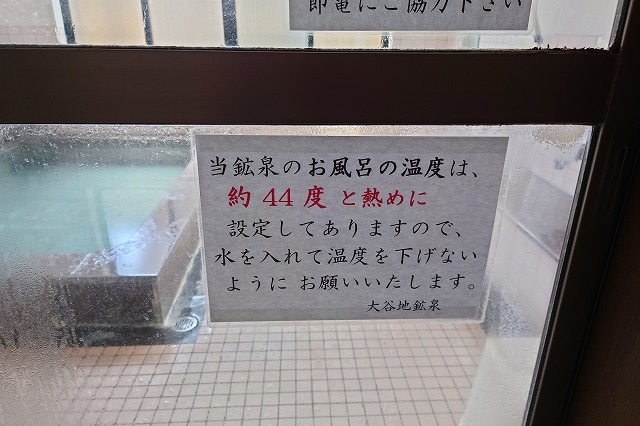 節電にご協力下さい
当鉱泉のお風呂の温度は、
約 44 度 と熱めに
設定してありますので、
水を入れて温度を下げない
ように お願いいたします。
大谷地鉱泉